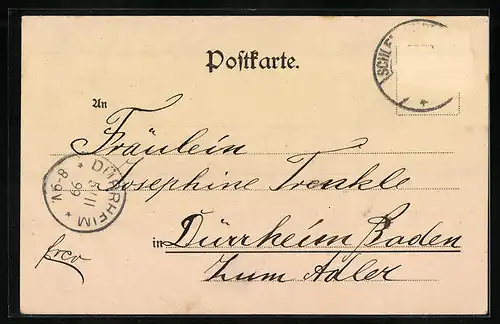 Postkarte.
SCHL
An
Fräulein
Josephine Trenkle
DÜRRHEIM
11
99
V.6-8
in Dürrheim Baden
Zum Adler
frco